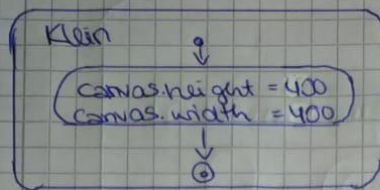 Klein
canvas.height = 400
canvas.width = 400